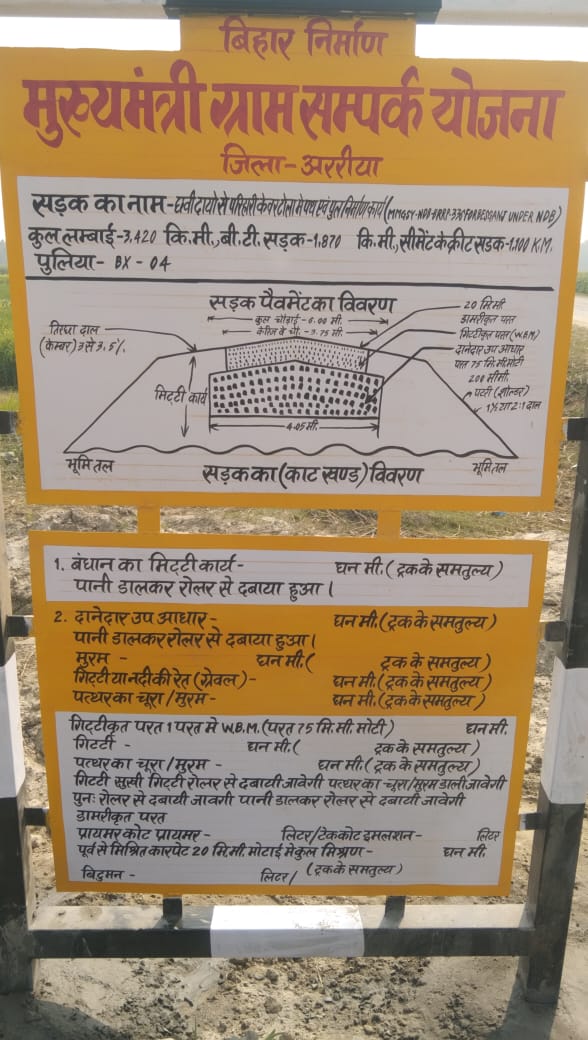 बिहार निर्माण
मुख्यमंत्री ग्राम सम्पर्क योजना
जिला-अररीया
सड़क का नाम-छवी दायो से परिहारी केवट टोला मे पथ एवं पुल निर्माण कार्य (MMGSY-NDB-BRRP-336 FORBESGANJ UNDER NDB)
कुल लम्बाई-3.420 कि.मी., बी.टी. सड़क-1.870 कि.मी., सीमेंट कंक्रीट सड़क-1.300 K.M.
पुलिया- BX - 04
सड़क पैवमेंट का विवरण
कुल चौड़ाई-6.00 मी.
केरिज वे चौ.-3.75 मी.
तिरछा ढाल
(केम्बर) 3 से 3.5%.
20 मि.मी
डामरीकृत परत
गिट्टीकृत परत (W.B.M)
दानेदार उप आधार
परत 75 मि.मी मोटी
200 मीमी.
पटरी (शोल्डर)
1½ या 2:1 ढाल
मिट्टी कार्य
4.05 मी.
भूमि तल
सड़क का (काट खण्ड) विवरण
भूमि तल
1. बंधान का मिट्टी कार्य- घन मी. (ट्रक के समतुल्य)
पानी डालकर रोलर से दबाया हुआ।
2. दानेदार उप आधार- घन मी. (ट्रक के समतुल्य)
पानी डालकर रोलर से दबाया हुआ।
मुरम - घन मी. ( ट्रक के समतुल्य)
गिट्टी या नदी की रेत (ग्रेवल)- घन मी. (ट्रक के समतुल्य)
पत्थर का चूरा/मुरम- घन मी. (ट्रक के समतुल्य)
गिट्टीकृत परत 1 परत मे W.B.M. (परत 75 मि.मी. मोटी) घन मी.
गिटटी - घन मी. ( ट्रक के समतुल्य)
पत्थर का चूरा/मुरम- घन मी. (ट्रक के समतुल्य)
गिटटी सुखी गिटटी रोलर से दबायी जावेगी पत्थर का चुरा/मुरम डाली जावेगी
पुनः रोलर से दबायी जावगी पानी डालकर रोलर से दबायी जावेगी
डामरीकृत परत
प्रायमर कोट प्रायमर- लिटर/टेककोट इमलशन- लिटर
पूर्व से मिश्रित कारपेट 20 मि.मी. मोटाई मे कुल मिश्रण- घन मी.
बिटुमन - लिटर/ (ट्रक के समतुल्य)